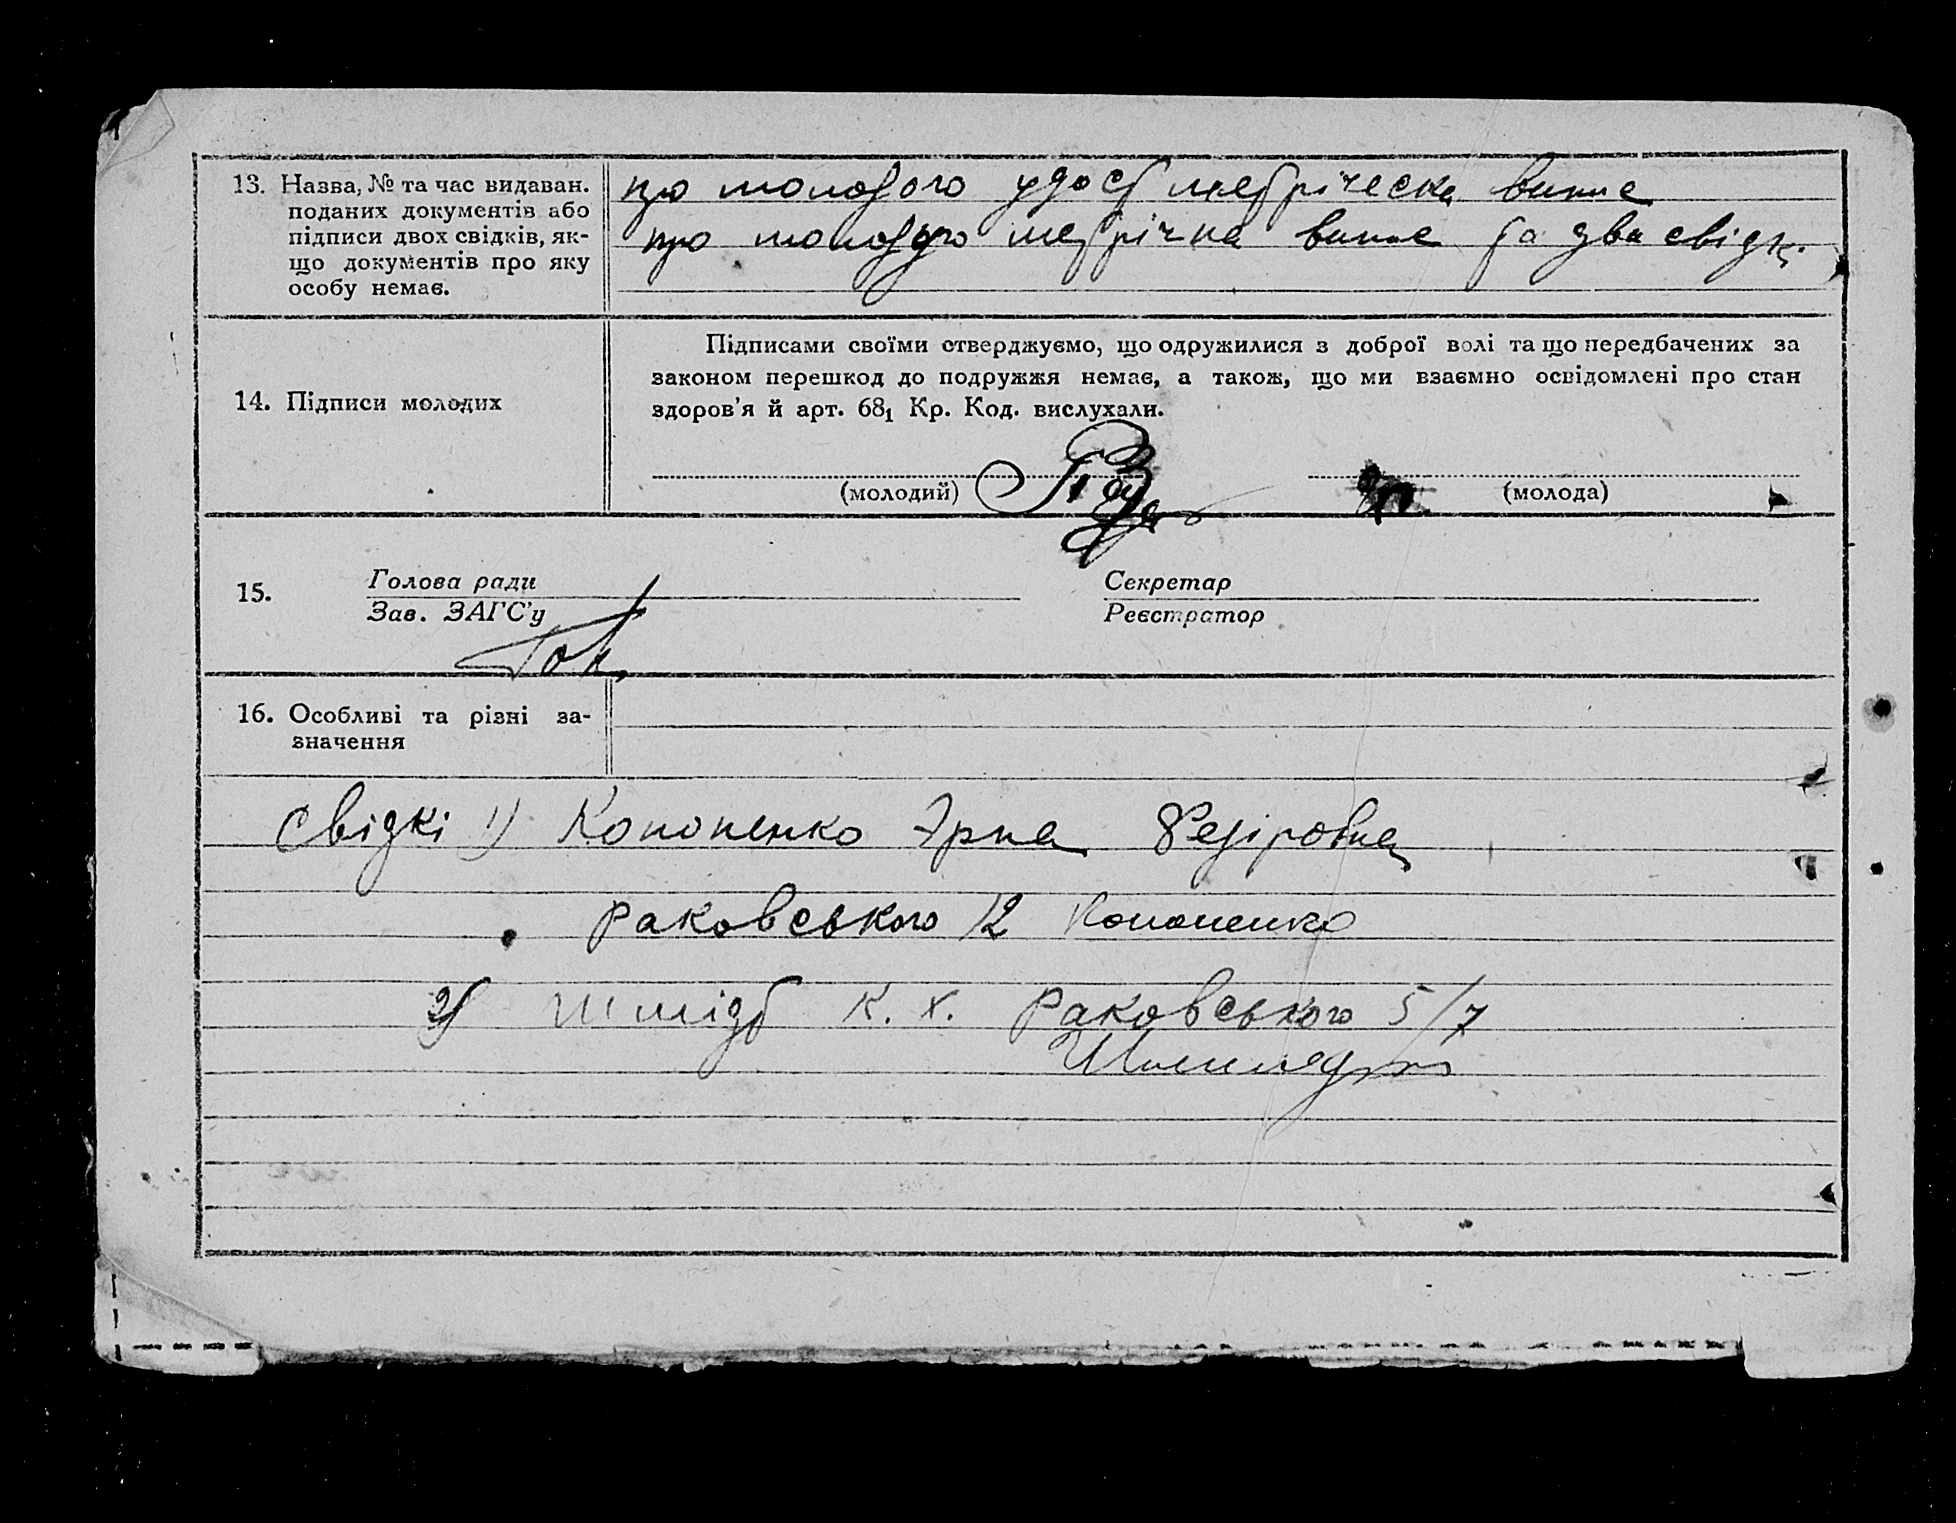 13. Назва, № та час видаван.
поданих документів або
підписи двох свідків, як-
що документів про яку
особу немає.
про молодого удост метріческа випис
про молодую метрічна випис та два свідк.
14. Підписи молодих
Підписами своїми стверджуємо, що одружилися з доброї волі та що передбачених за
законом перешкод до подружжя немає, а також, що ми взаємно освідомлені про стан
здоров'я й арт. 68₁ Кр. Код. вислухали.
(молодий) (молода)
15. Голова ради Секретар
Зав. ЗАГС'у Реєстратор
16. Особливі та різні за-
значення
Свідкі 1) Кононенко Эрна
Раковського 12 Кононенко
2) Шмідт К. Х. Раковського 5/7